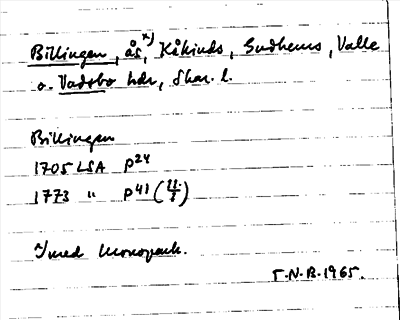 Billingen, ås, x) Kåkinds, Gudhems, Valle
o. Vadsbo hdr, Skar. l.
Billingen
1705 LSA p24
1773 " p41 (11/7)
I med
T.N.B. 1965.